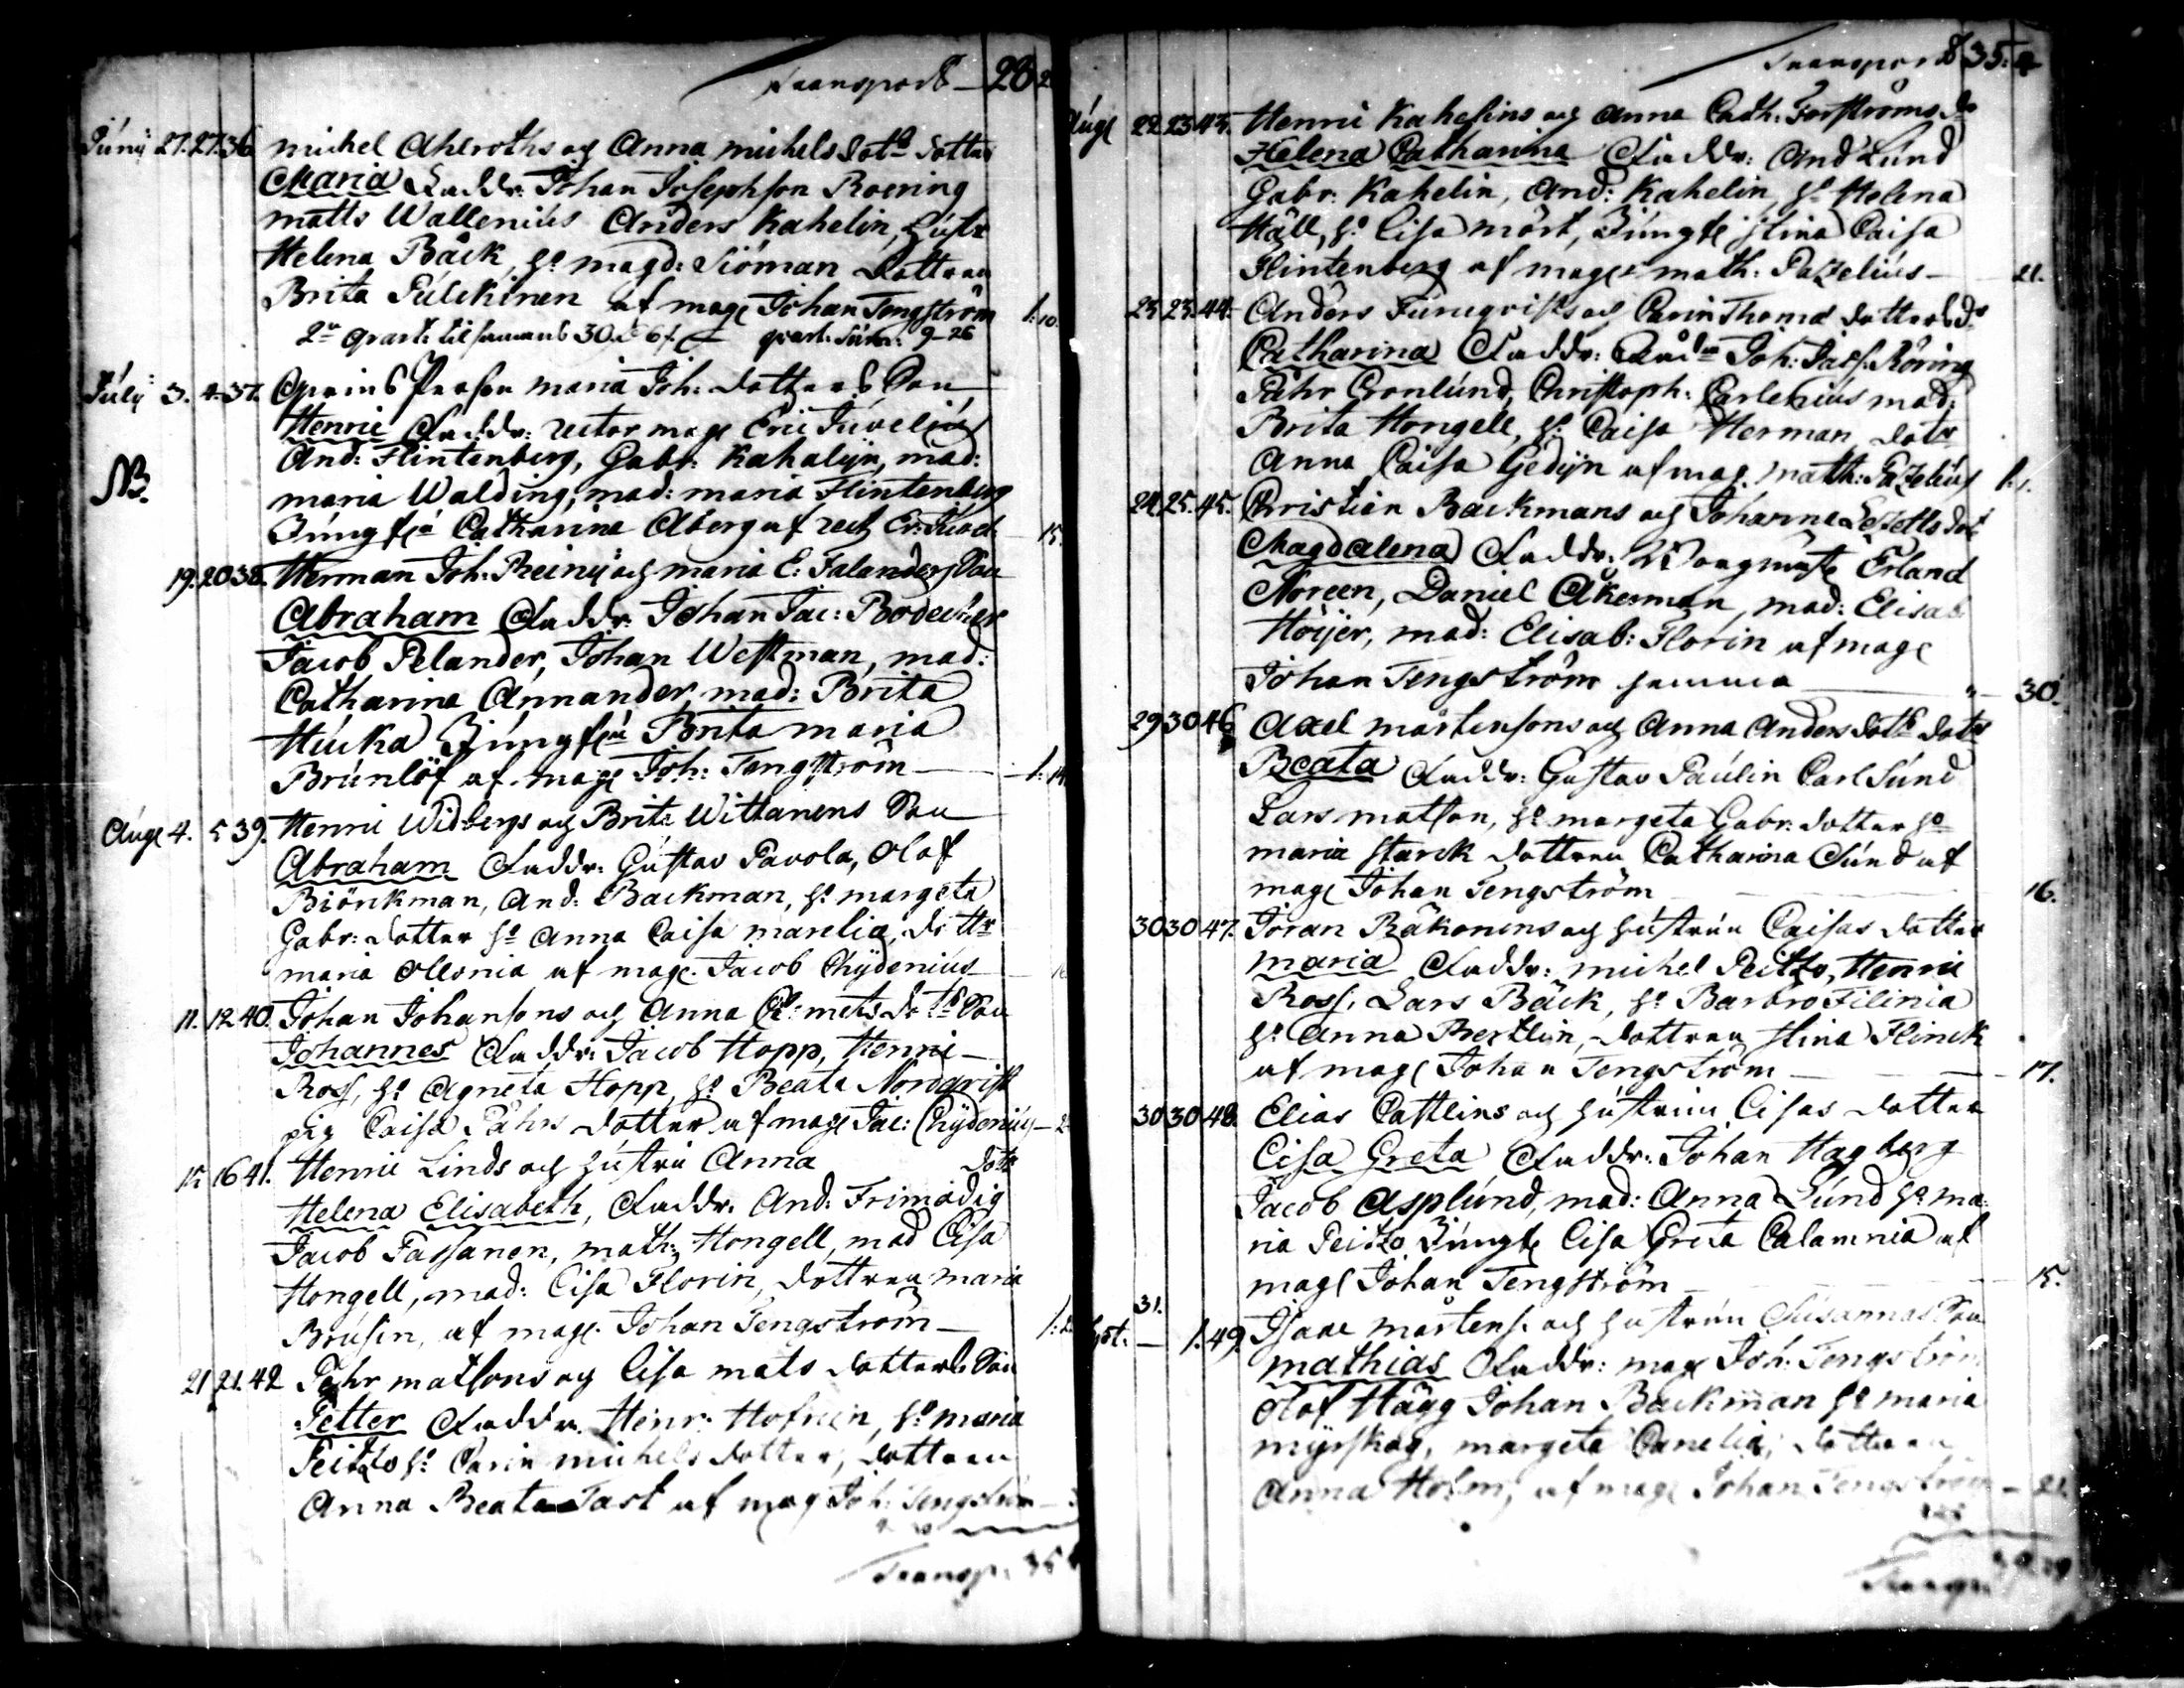 Transport 28 2
Junij 27. 27. 36 michel Ahlroths og Anna michels dotr dotter
Maria Faddr. Johan Josephson Roering
matts Wallenius Anders Kahelin, Hustr
Helena Bäck, ho magd: Siöman dottren
Brita Pulckinen af mag Johan Tengström 1:10.
July 3. 4. 37. maria Joh. dotters Son
Henric Faddr. rector mag Eric Juvelius
And: Flintenberg, Gabr. Kahalijn, mad:
NB. maria Walding, mad: maria Flintenberg
Jungfru Catharina Aberg af rect Er. Juvel 15.
19. 20 38. Herman Joh. Reinij och maria E: Falanders Son
Abraham Faddr. Johan Jac: Bodecker
Jacob Pelander, Johan Westman, mad:
Catharina Annander, mad: Brita
Hucka Jungfru Brita maria
Brunlöf af mag Joh: Tengström 1: 14
Aug 4. 5 39. Henric Widbergs og Brita Wittanens Son
Abraham Faddr. Gustav Pavola, Olof
Biörckman, And: Backman, ho margeta
Gabr: dotter ho Anna Caisa marelia, dottr
maria Alconia af mag. Jacob Chydenius
11. 12 40. Johan Johansons og Anna Clemets dotr Son
Johannes Faddr. Jacob Hopp, Henric
Ross, ho Agneta Hopp, ho Beata Nordqvist
pig Caisa Påhrs dotter af mag Jac: Chydenius
15 16 41. Henric Linds og hustru Anna dotr
Helena Elisabeth, Faddr. And: Frimodig
Jacob Fassanen, math: Hongell, mad Lisa
Hongell, mad: Lisa Florin, dottren maria
Brusin, af mag. Johan Tengström
21 21. 42 Påhr matsons og Lisa mats dotters Son
Petter Faddr. Henr: Hofreen, ho maria
Peitzo ho Carin michels dotter, dottren
Anna Beata Tast af mag Joh: Tengström
Transp. 35
Transport 35:
Aug 22 23 43. Henric Kahelins og Anna Cath. Forströms dr
Helena Catharina Faddr: And Lund
Gabr. Kahelin, And: Kahelin, ho Helena
Häll, ho Lisa mört, Jungfr Stina Caisa
Flintenberg af mag math: Pazelius 21.
23 23. 44. Anders Furuqvists og Carin Thomæ dotters dr
Catharina Faddr: Joh: Röring
Påhr Gronlund, Christoph. Carlenius mad:
Brita Hongell, ho Caisa Herman, dotr
Anna Caisa Gedijn af mag. math: Pazelius 1:1.
24. 25. 45. Christian Backmans og Johanna dotr
Magdalena Faddr: Erland
Noreen, Daniel Akerman, mad: Elisab
Höijer, mad: Elisab: Florin af mag
Johan Tengström 30.
29 30 46 Axel mårtensons og Anna Anders dotrs dotr
Beata Faddr: Gustav Paulin Carl Sund
Lars matson, ho margeta Gabr: dotter ho
maria Starck dottren Catharina Sund af
mag Johan Tengström 16.
30 30 47. Joran Räkonens og hustrun Caisas dotter
maria Faddr: michel Peitzo, Henric
Ross, Lars Bäck, ho Barbro Filinia
ho Anna Bertlin, dottren Stina Flinck
af mag Johan Tengström 17.
30 30 48. Elias Cattlins og hustrun Lisas dotter
Lisa Greta Faddr. Johan Hagberg
Jacob Asplund, mad: Anna Lund ho ma-
ria Peitzo Jungfr Lisa Greta Calamnia af
mag Johan Tengström 15.
31. 1. 49. Isaac mårtens. och hustrun Susannas Son
mathias Faddr: mag Joh: Tengström
Olof Hägg Johan Backman ho maria
mijrskog, margeta Canelia, dottren
Anna Holm, af mag Johan Tengström 21.